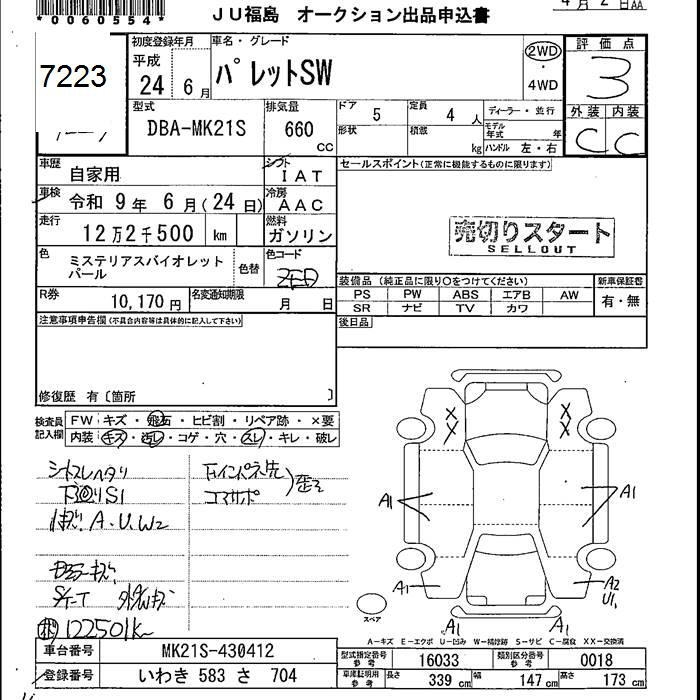 *0060554*
JU福島 オークション出品申込書
4月2日AA
7223
初度登録年月
平成
24 6月
車名・グレード
パレットSW
2WD
・
4WD
評価点
3
外装 内装
C C
型式
DBA-MK21S
排気量
660
cc
ドア 5
形状
定員 4人
積載 kg
ディーラー・並行
モデル年式 年
ハンドル 左・右
車歴
自家用
シフト
IAT
車検
令和 9年 6月(24日)
冷房
AAC
走行
12万2千500 km
燃料
ガソリン
色
ミステリアスバイオレット
パール
色替
色コード
ZED
R券
10,170円
名変通知期限
月 日
セールスポイント(正常に機能するものに限ります)
売切りスタート
SELLOUT
装備品(純正品に限り○をつけてください)
PS PW ABS エアB AW
SR ナビ TV カワ
新車保証書
有・無
後日品
注意事項申告欄(不具合内容等は具体的に記入して下さい)
修復歴 有〔箇所 〕
検査員
記入欄
FW キズ・飛石・ヒビ割・リペア跡・×要
内装 キズ・汚レ・コゲ・穴・スレ・キレ・破レ
シートスレヘタリ
下廻りS1
A.U.W2
コアサポ
122501K
XX XX
A1 A1
A1 A2
U1,
A1 A1
スペア
A-キズ E-エクボ U-凹み W-補修跡 S-サビ C-腐食 XX-交換済
車台番号
MK21S-430412
登録番号
いわき 583 さ 704
型式指定番号
参考
16033
類別区分番号
参考
0018
車庫証明用
参考
長さ 339cm 幅 147cm 高さ 173cm